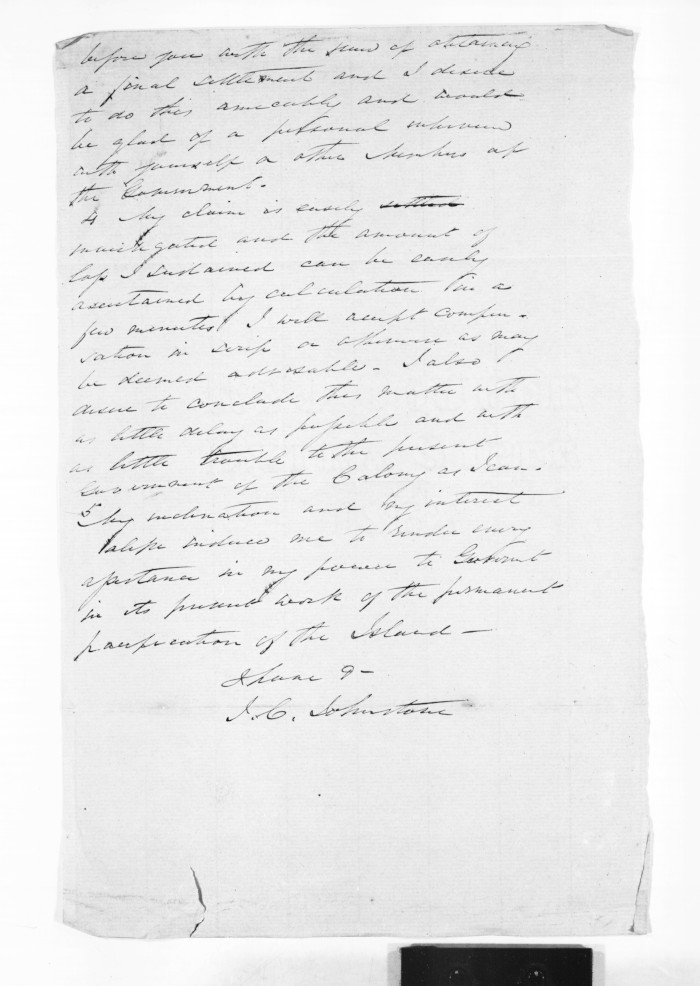 before you with the view of obtaining
a final settlement and I desire
to do this amicably and would
be glad of a personal interview
with yourself or other Members of
the Government.
4 My claim is easily settled
investigated and the amount of
loss I sustained can be easily
ascertained by calculation in a
few minutes. I will accept compen-
sation in scrip or otherwise as may
be deemed advisable. I also
desire to conclude this matter with
as little delay as possible and with
as little trouble to the present
Government of the Colony as I can.
5 My inclination and my interest
alike induce me to render every
assistance in my power to Governt
in its present work of the permanent
pacification of the Island —
I have &
J. C. Johnstone